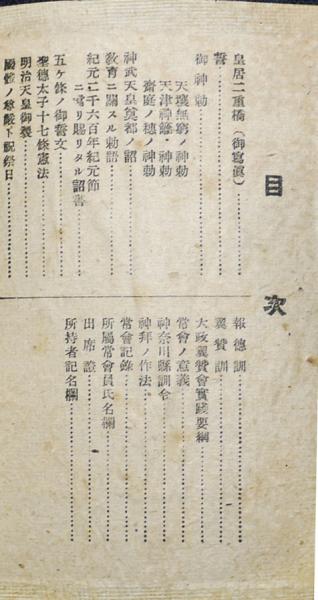 目次
皇居二重橋(御寫眞)
誓
御神勅
天壤無窮ノ神勅
天津神籬・神勅
齋庭ノ穗ノ神勅
神武天皇奠都ノ詔
敎育ニ關スル勅語
紀元二千六百年紀元節
ニ當リ賜リタル詔書
五ヶ條ノ御誓文
聖德太子十七條憲法
明治天皇御製
國體ノ尊嚴ト祝祭日
報德訓
翼贊訓
大政翼贊會實踐要綱
常會ノ意義
神奈川縣訓令
神拜ノ作法
常會記錄
所屬常會員氏名欄
出席證
所持者記名欄